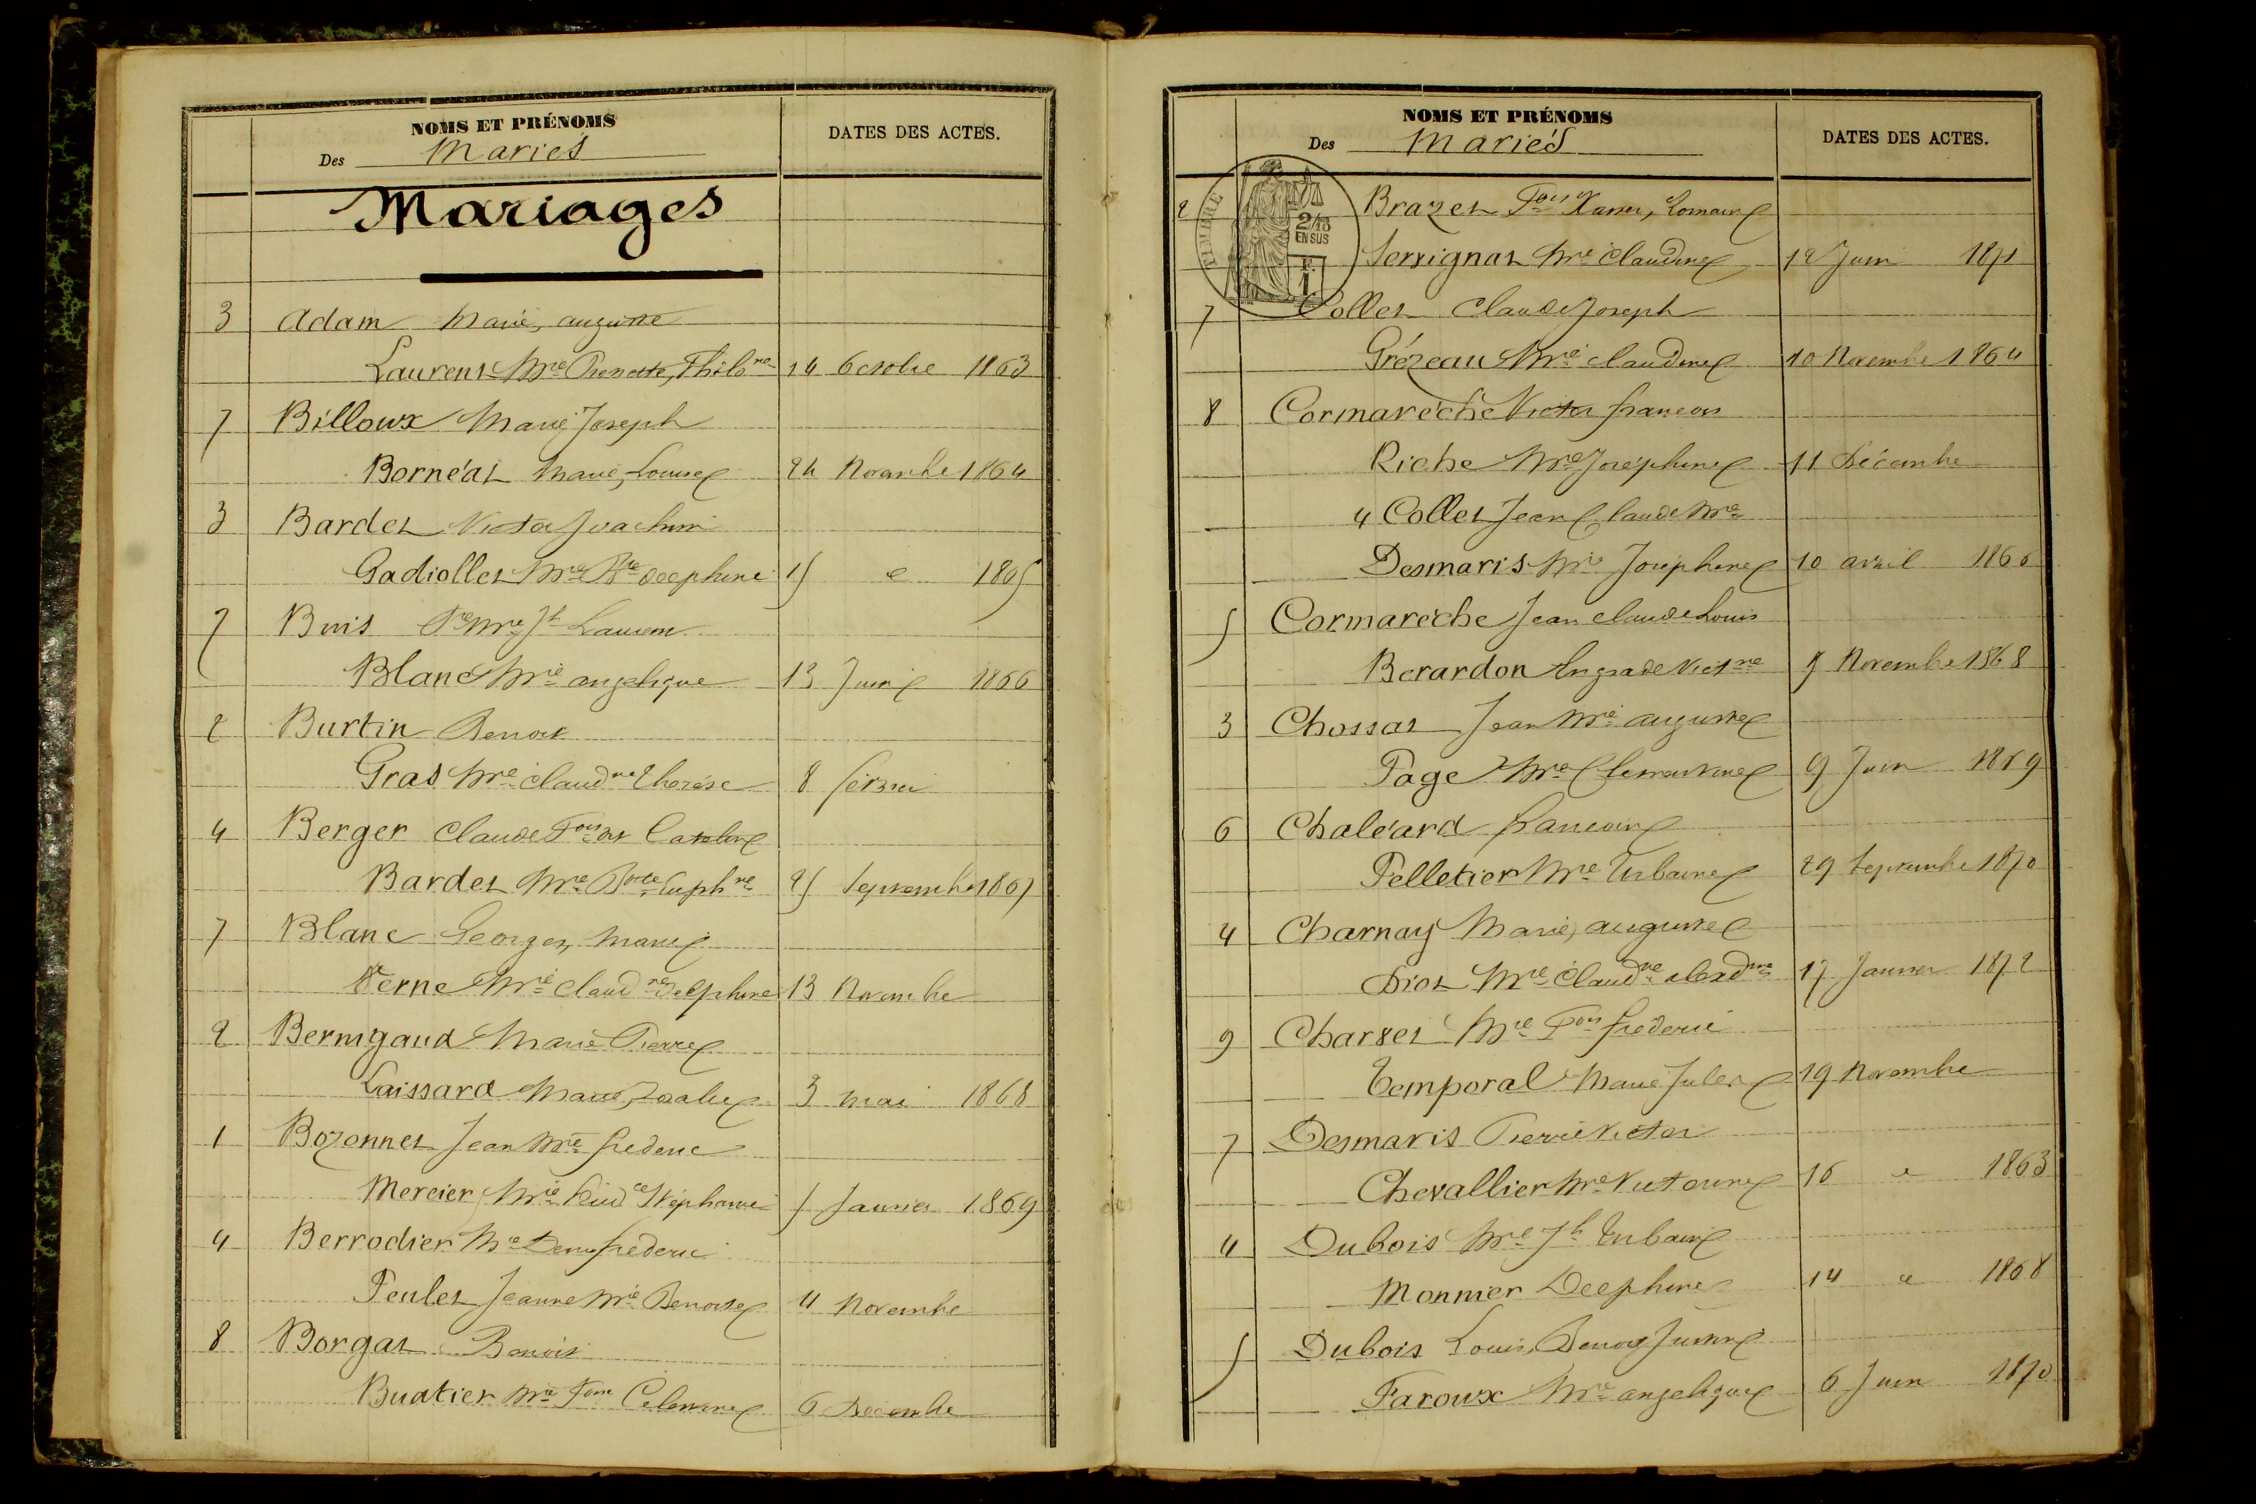 NOMS ET PRÉNOMS
Des Mariés
DATES DES ACTES.
Mariages
3 Adam Marie, auguste
Laurent Mie Pierrette, Philone 14 Octobre 1863
7 Billoux Marie Joseph
Bornéat Marie, Louise 24 Novembre 1864
3 Bardet Victor Joachim
Gadiollet Mie Bte Josephine 15 " 1865
7 Buis Pre Mie Jh Laurent
Blanc Mie angelique 13 Juin 1866
2 Burtin Benoit
Gras Mie Claudne Therése 8 fevrier
4 Berger Claude Fois
Bardet Mie Euphne 25 Septembre 1867
7 Blanc Georges, Marie
Verne Mie Claudne Delphine 13 Novembre
2 Bernigaud Marie Pierre
Laissard Marie, Rosalie 3 mai 1868
1 Bozonnet Jean Mie frederic
Mercier Mie Stéphanie 5 Janvier 1869
4 Berrodier Mie Denis frederic
Peulet Jeanne Mie Benoite 4 Novembre
8 Borgat Benoit
Buatier Mie Foise Celestine 6 Decembre
NOMS ET PRÉNOMS
Des Mariés
DATES DES ACTES.
TIMBRE
2/10
EN SUS
F.
1
2 Brazet Fois Xavier, Romain
Serrignat Mie Claudine 12 Juin 1871
7 Collet Claude Joseph
Grézeau Mie Claudine 10 Novembre 1864
8 Cormarèche Victor francois
Riche Mie Joséphine 11 Décembre
4 Collet Jean Claude Mie
Desmaris Mie Joséphine 10 avril 1866
5 Cormarèche Jean Claude Louis
Berardon Victne 9 Novembre 1868
3 Chossat Jean Mie auguste
Page Mie Clementine 9 Juin 1869
6 Chaléard francois
Pelletier Mie Urbaine 29 Septembre 1870
4 Charnay Marie, auguste
Diot Mie Claudne 17 Janvier 1872
9 Charvet Mie Fois frederic
Temporal Marie Julie 19 Novembre
7 Desmaris Pierre Victor
Chevallier Mie Victorine 16 " 1863
4 Dubois Mie Jh Urbain
Monnier Delphine 14 " 1868
5 Dubois Louis, Benoit Justin
Faroux Mie angelique 6 Juin 1870